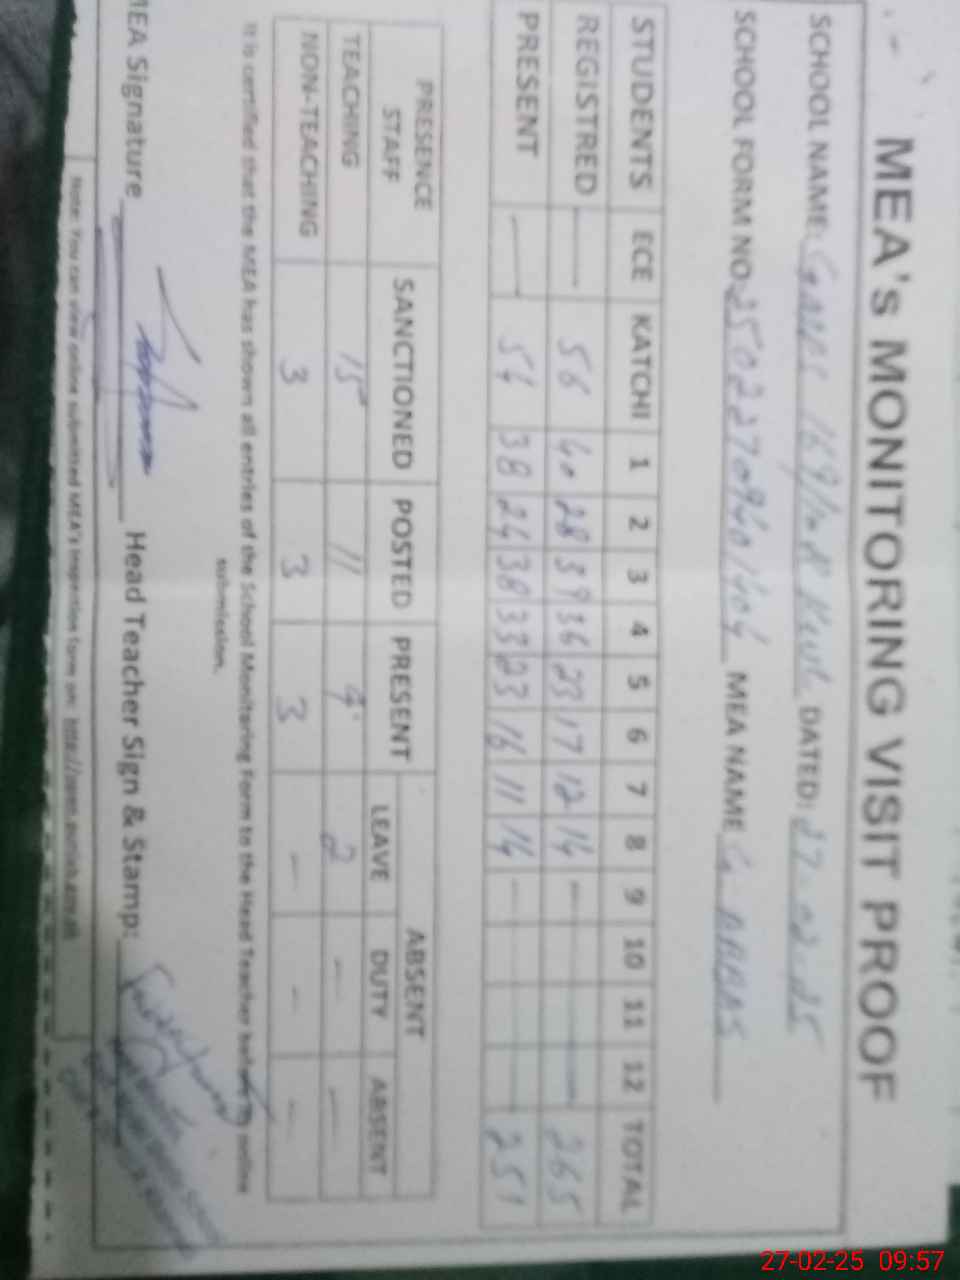 MEA's MONITORING VISIT PROOF
SCHOOL NAME: 169/10R DATED: 27-02-25
SCHOOL FORM NO: MEA NAME G. ABBAS
STUDENTS ECE KATCHI 1 2 3 4 5 6 7 8 9 10 11 12 TOTAL
REGISTRED — 56 40 28 39 36 23 17 12 14 — 265
PRESENT — 54 38 24 38 33 23 16 11 14 — 251
PRESENCE STAFF SANCTIONED POSTED PRESENT ABSENT
LEAVE DUTY ABSENT
TEACHING 15 11 9 2 — —
NON-TEACHING 3 3 3 — — —
It is certified that the MEA has shown all entries of the School Monitoring Form to the Head Teacher before its online
submission.
MEA Signature Head Teacher Sign & Stamp:
Note: You can view online submitted MEA's inspection form on:
27-02-25 09:57